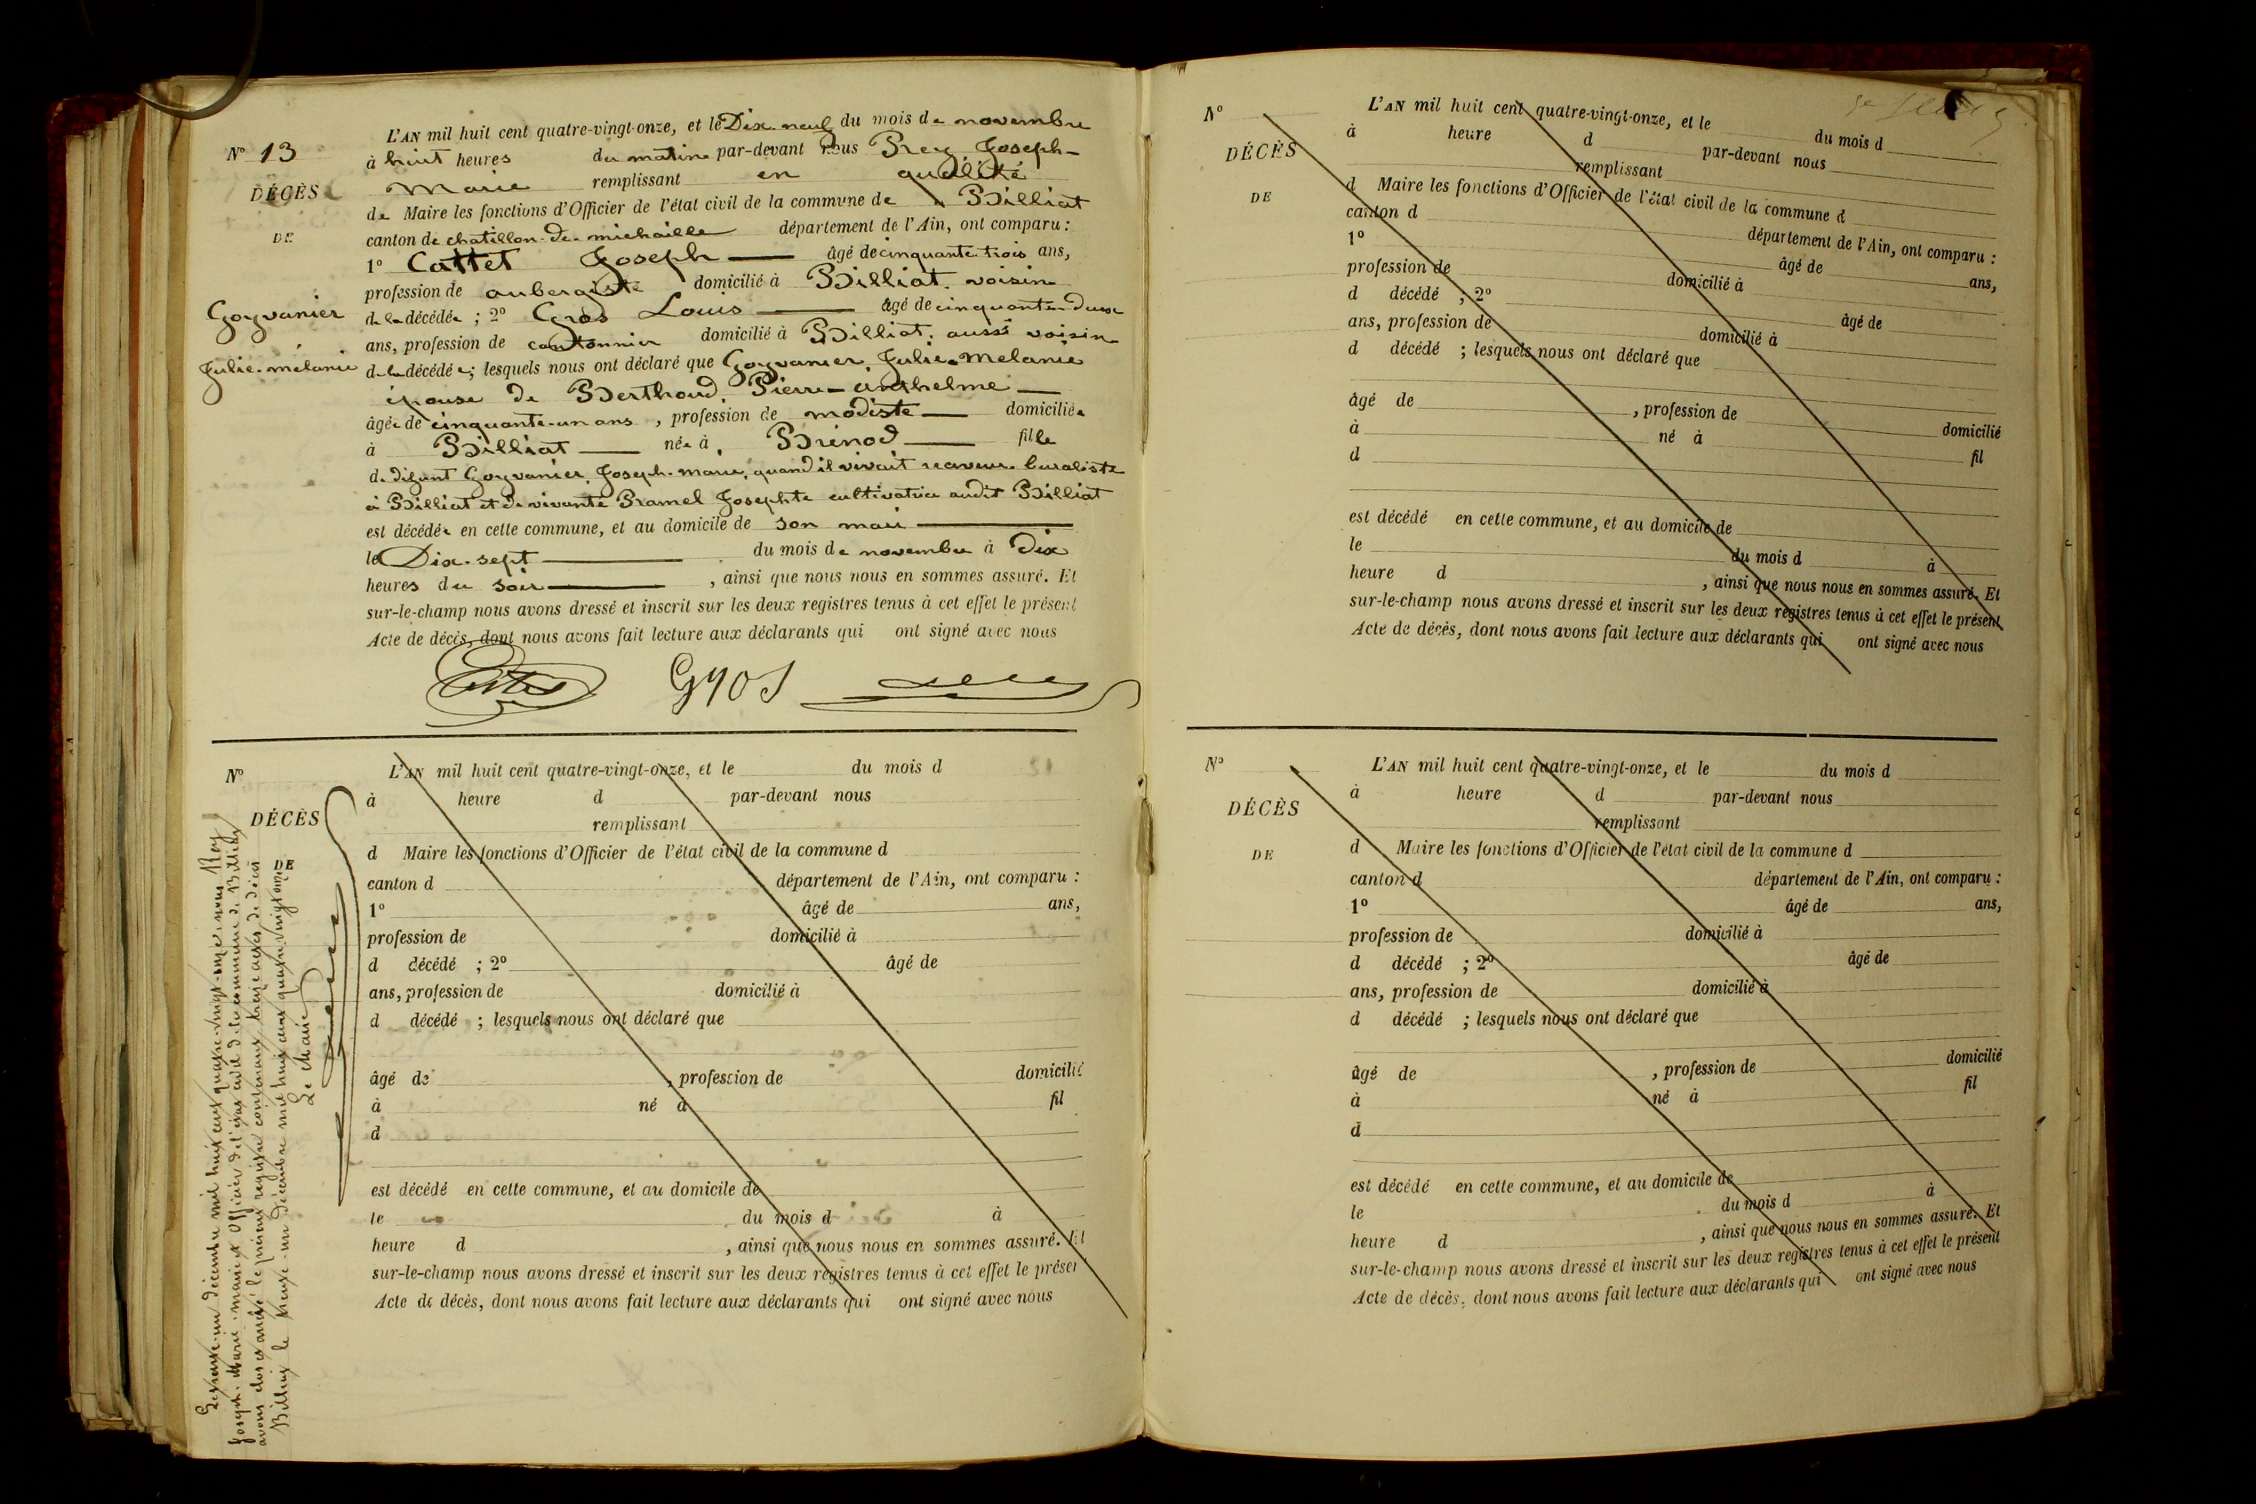 L'AN mil huit cent quatre-vingt-onze, et le Dix-neuf du mois de novembre
N° 13
à huit heures du matin par-devant nous Prey Joseph-
Marie remplissant en qualité
DÉCÈS
de Maire les fonctions d'Officier de l'état civil de la commune de Billiat
DE
canton de chatillon-de-michaille département de l'Ain, ont comparu :
1° Cattet Joseph âgé de cinquante-trois ans,
profession de aubergiste domicilié à Billiat. voisin
Goyvanier
de la décédée ; 2° Gros Louis âgé de cinquante-deux
ans, profession de cantonnier domicilié à Billiat. aussi voisin
Julie-mélanie
de la décédée ; lesquels nous ont déclaré que Goyvanier, Julie-Mélanie
épouse de Berthoud, Pierre-Anthelme
âgée de cinquante-un ans, profession de modiste domiciliée
à Billiat née à Brénod fille
de défunt Goyvanier, Joseph-marie, quand il vivait receveur buraliste
à Billiat et de vivante Pramel Josephte cultivatrice audit Billiat
est décédée en cette commune, et au domicile de son mari
le Dix-sept du mois de novembre à Dix
heures du soir, ainsi que nous nous en sommes assuré. Et
sur-le-champ nous avons dressé et inscrit sur les deux registres tenus à cet effet le présent
Acte de décès, dont nous avons fait lecture aux déclarants qui ont signé avec nous
Gros
N°
DÉCÈS
DE
L'AN mil huit cent quatre-vingt-onze, et le du mois d
à heure d par-devant nous
remplissant
d Maire les fonctions d'Officier de l'état civil de la commune d
canton d département de l'Ain, ont comparu :
1° âgé de ans,
profession de domicilié à
d décédé ; 2° âgé de
ans, profession de domicilié à
d décédé ; lesquels nous ont déclaré que
âgé de , profession de domicilié
à né à fil
d
est décédé en cette commune, et au domicile de
le du mois d à
heure d , ainsi que nous nous en sommes assuré. Et
sur-le-champ nous avons dressé et inscrit sur les deux registres tenus à cet effet le présen
Acte de décès, dont nous avons fait lecture aux déclarants qui ont signé avec nous
Le trente-un décembre mil huit cent quatre-vingt-onze, nous Prey
Joseph-Marie maire et Officier de l'état civil de la commune de Billiat
avons clos et arrêté le présent registre contenant treize actes de décès
Billiat le trente-un décembre mil huit cent quatre vingt onze
Le Maire
N°
DÉCÈS
DE
L'AN mil huit cent quatre-vingt-onze, et le du mois d
à heure d par-devant nous
remplissant
d Maire les fonctions d'Officier de l'état civil de la commune d
canton d département de l'Ain, ont comparu :
1° âgé de ans,
profession de domicilié à
d décédé ; 2° âgé de
ans, profession de domicilié à
d décédé ; lesquels nous ont déclaré que
âgé de , profession de domicilié
à né à fil
d
est décédé en cette commune, et au domicile de
le du mois d à
heure d , ainsi que nous nous en sommes assuré. Et
sur-le-champ nous avons dressé et inscrit sur les deux registres tenus à cet effet le présent
Acte de décès, dont nous avons fait lecture aux déclarants qui ont signé avec nous
N°
DÉCÈS
DE
L'AN mil huit cent quatre-vingt-onze, et le du mois d
à heure d par-devant nous
remplissant
d Maire les fonctions d'Officier de l'état civil de la commune d
canton d département de l'Ain, ont comparu :
1° âgé de ans,
profession de domicilié à
d décédé ; 2° âgé de
ans, profession de domicilié à
d décédé ; lesquels nous ont déclaré que
âgé de , profession de domicilié
à né à fil
d
est décédé en cette commune, et au domicile de
le du mois d à
heure d , ainsi que nous nous en sommes assuré. Et
sur-le-champ nous avons dressé et inscrit sur les deux registres tenus à cet effet le présent
Acte de décès, dont nous avons fait lecture aux déclarants qui ont signé avec nous